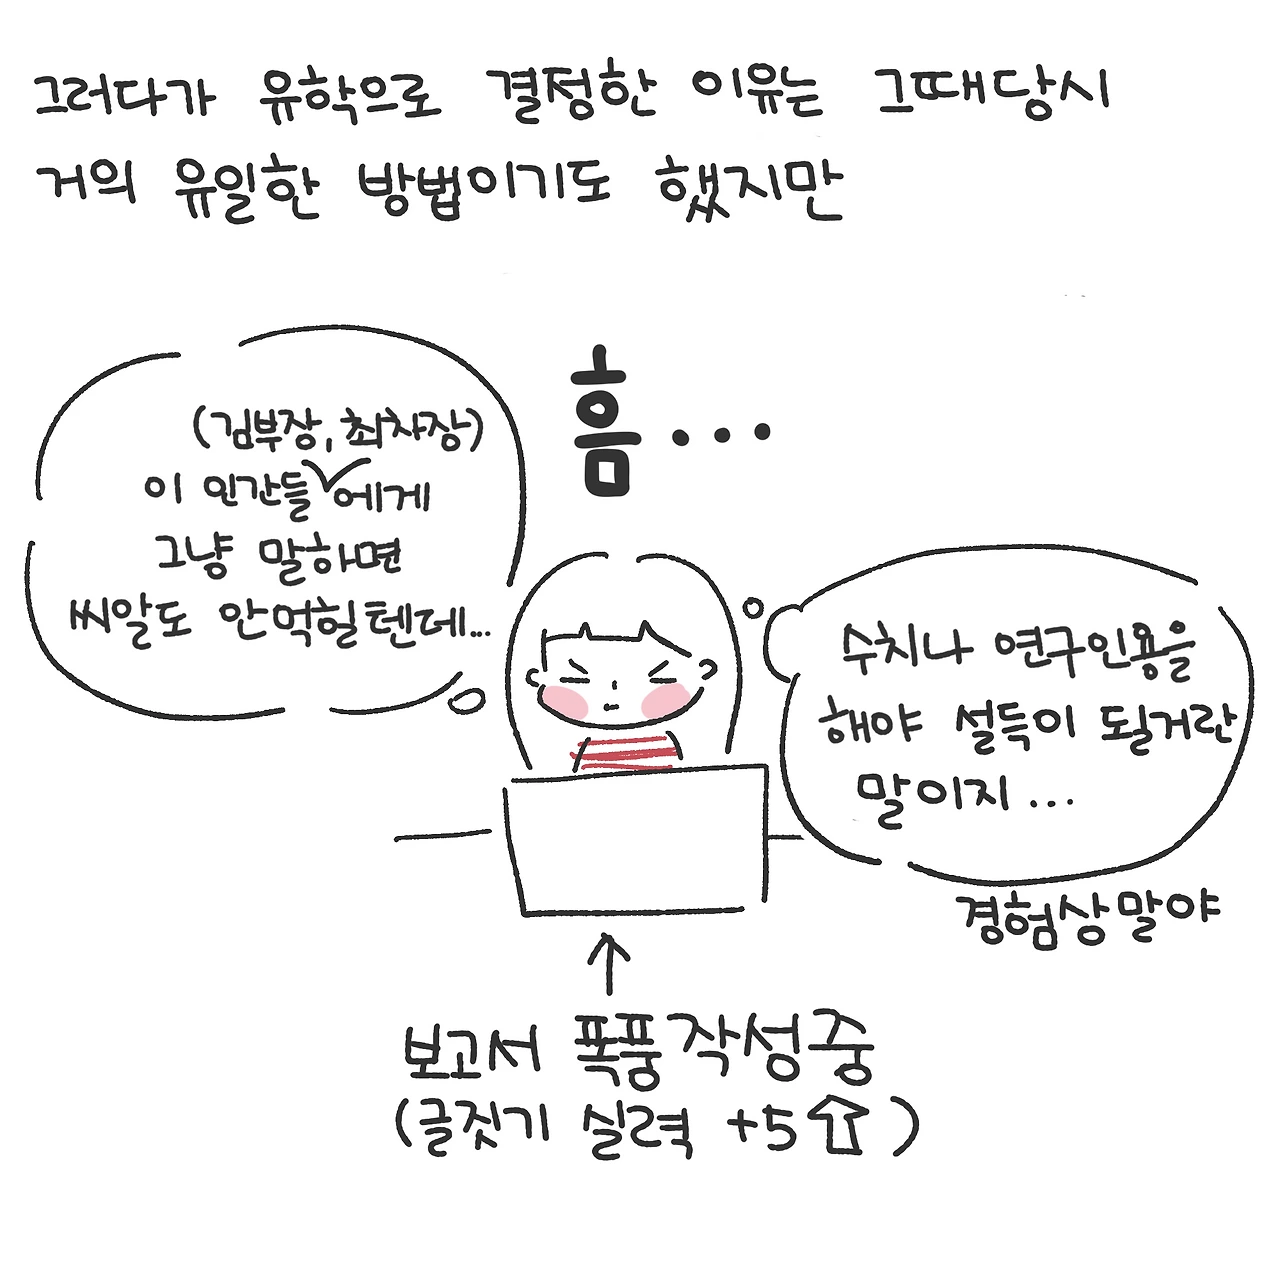 그러다가 유학으로 결정한 이유는 그때당시
거의 유일한 방법이기도 했지만
흠...
(김부장, 최차장)
이 인간들 에게
그냥 말하면
씨알도 안먹힐텐데...
수치나 연구인용을
해야 설득이 될거란
말이지...
경험상말야
보고서 폭풍작성중
(글짓기 실력 +5⇧)